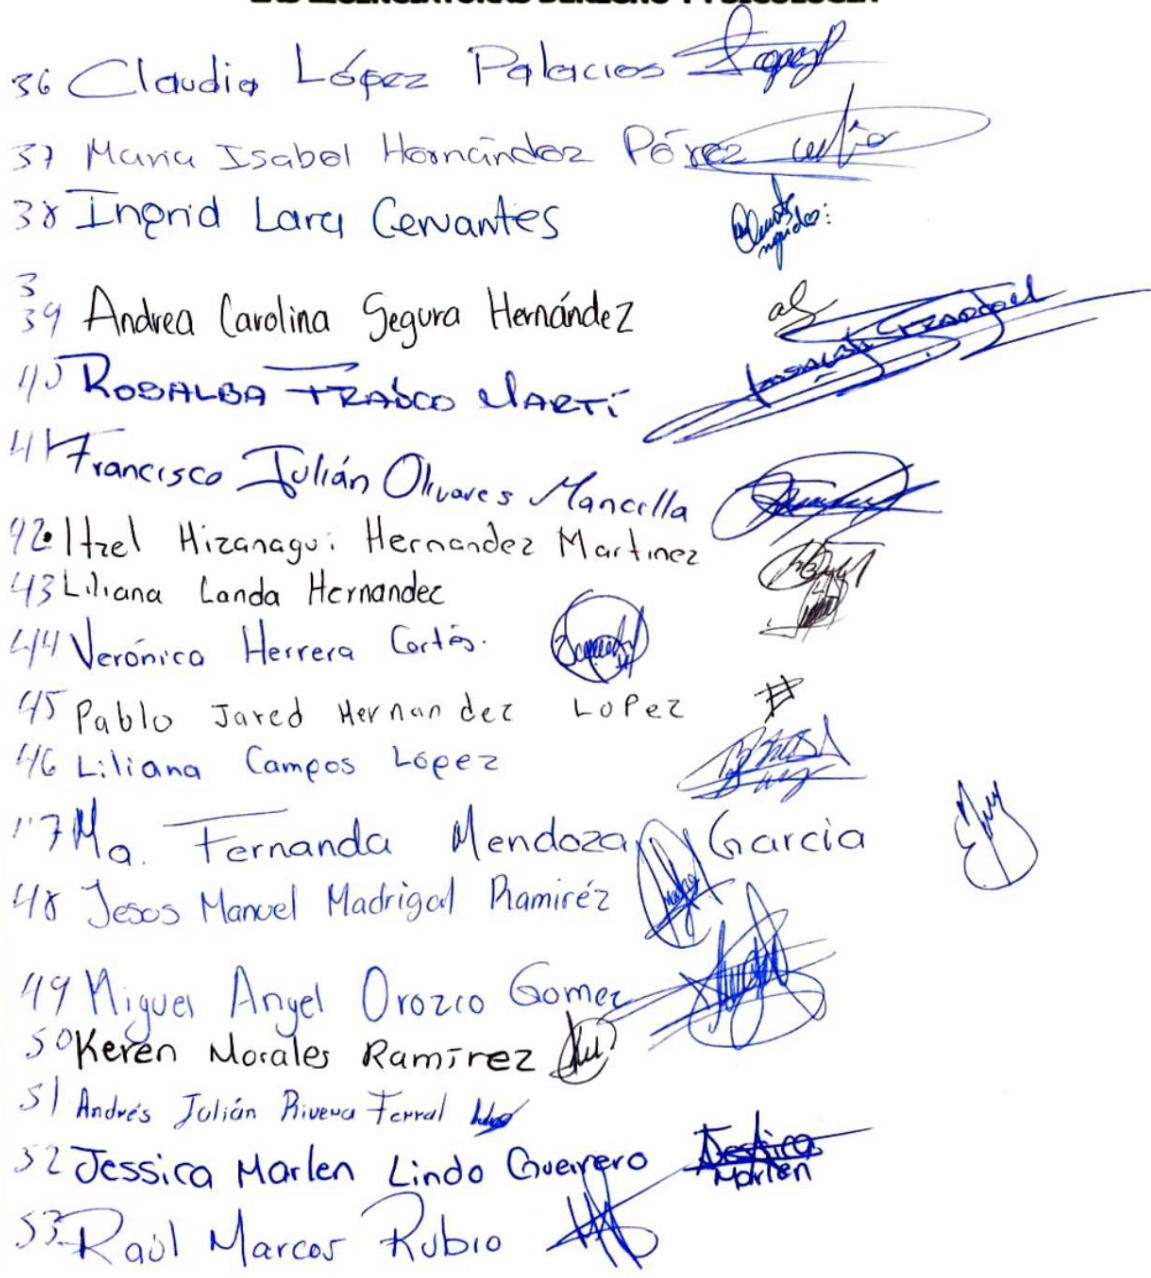 LAS LICENCIATURAS DERECHO Y PSICOLOGÍA
36 Claudia López Palacios
37 Maria Isabel Hernández Pérez
38 Ingrid Lara Cervantes
3
39 Andrea Carolina Segura Hernández
40 ROSALBA FRASCO MARTÍ
41 Francisco Julián Olivares Mancilla
42. Itzel Hizanagui Hernandez Martinez
43 Liliana Landa Hernandez
44 Verónica Herrera Cortés.
45 Pablo Jared Hernandez LoPez
46 Liliana Campos López
Ma. Fernanda Mendoza Garcia
48 Jesus Manuel Madrigal Ramiréz
49 Miguel Angel Orozco Gomez
50 Keren Morales Ramírez
51 Andrés Julián Rivera Ferral
52 Jessica Marlen Lindo Guerrero Jessica Marlen
53 Raúl Marcos Rubio